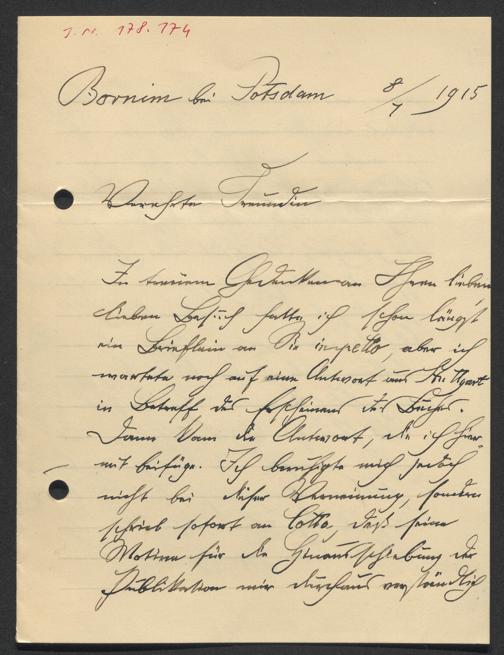 J. N. 178.174
Bornim bei Potsdam 8/7 1915
Verehrte Freundin
In treuem Gedenken an Ihren lieben,
lieben Besuch hatte ich schon längst
ein Brieflein an Sie in petto, aber ich
wartete noch auf eine Antwort aus Stuttgart
in Betreff des Erscheinens des Buches.
Dann kam die Antwort, die ich hier
mit beifüge. Ich beruhigte mich jedoch
nicht bei dieser Verneinung, sondern
schrieb sofort an Cotta, daß seine
Motive für die Hinausschiebung der
Publikation mir durchaus verständlich